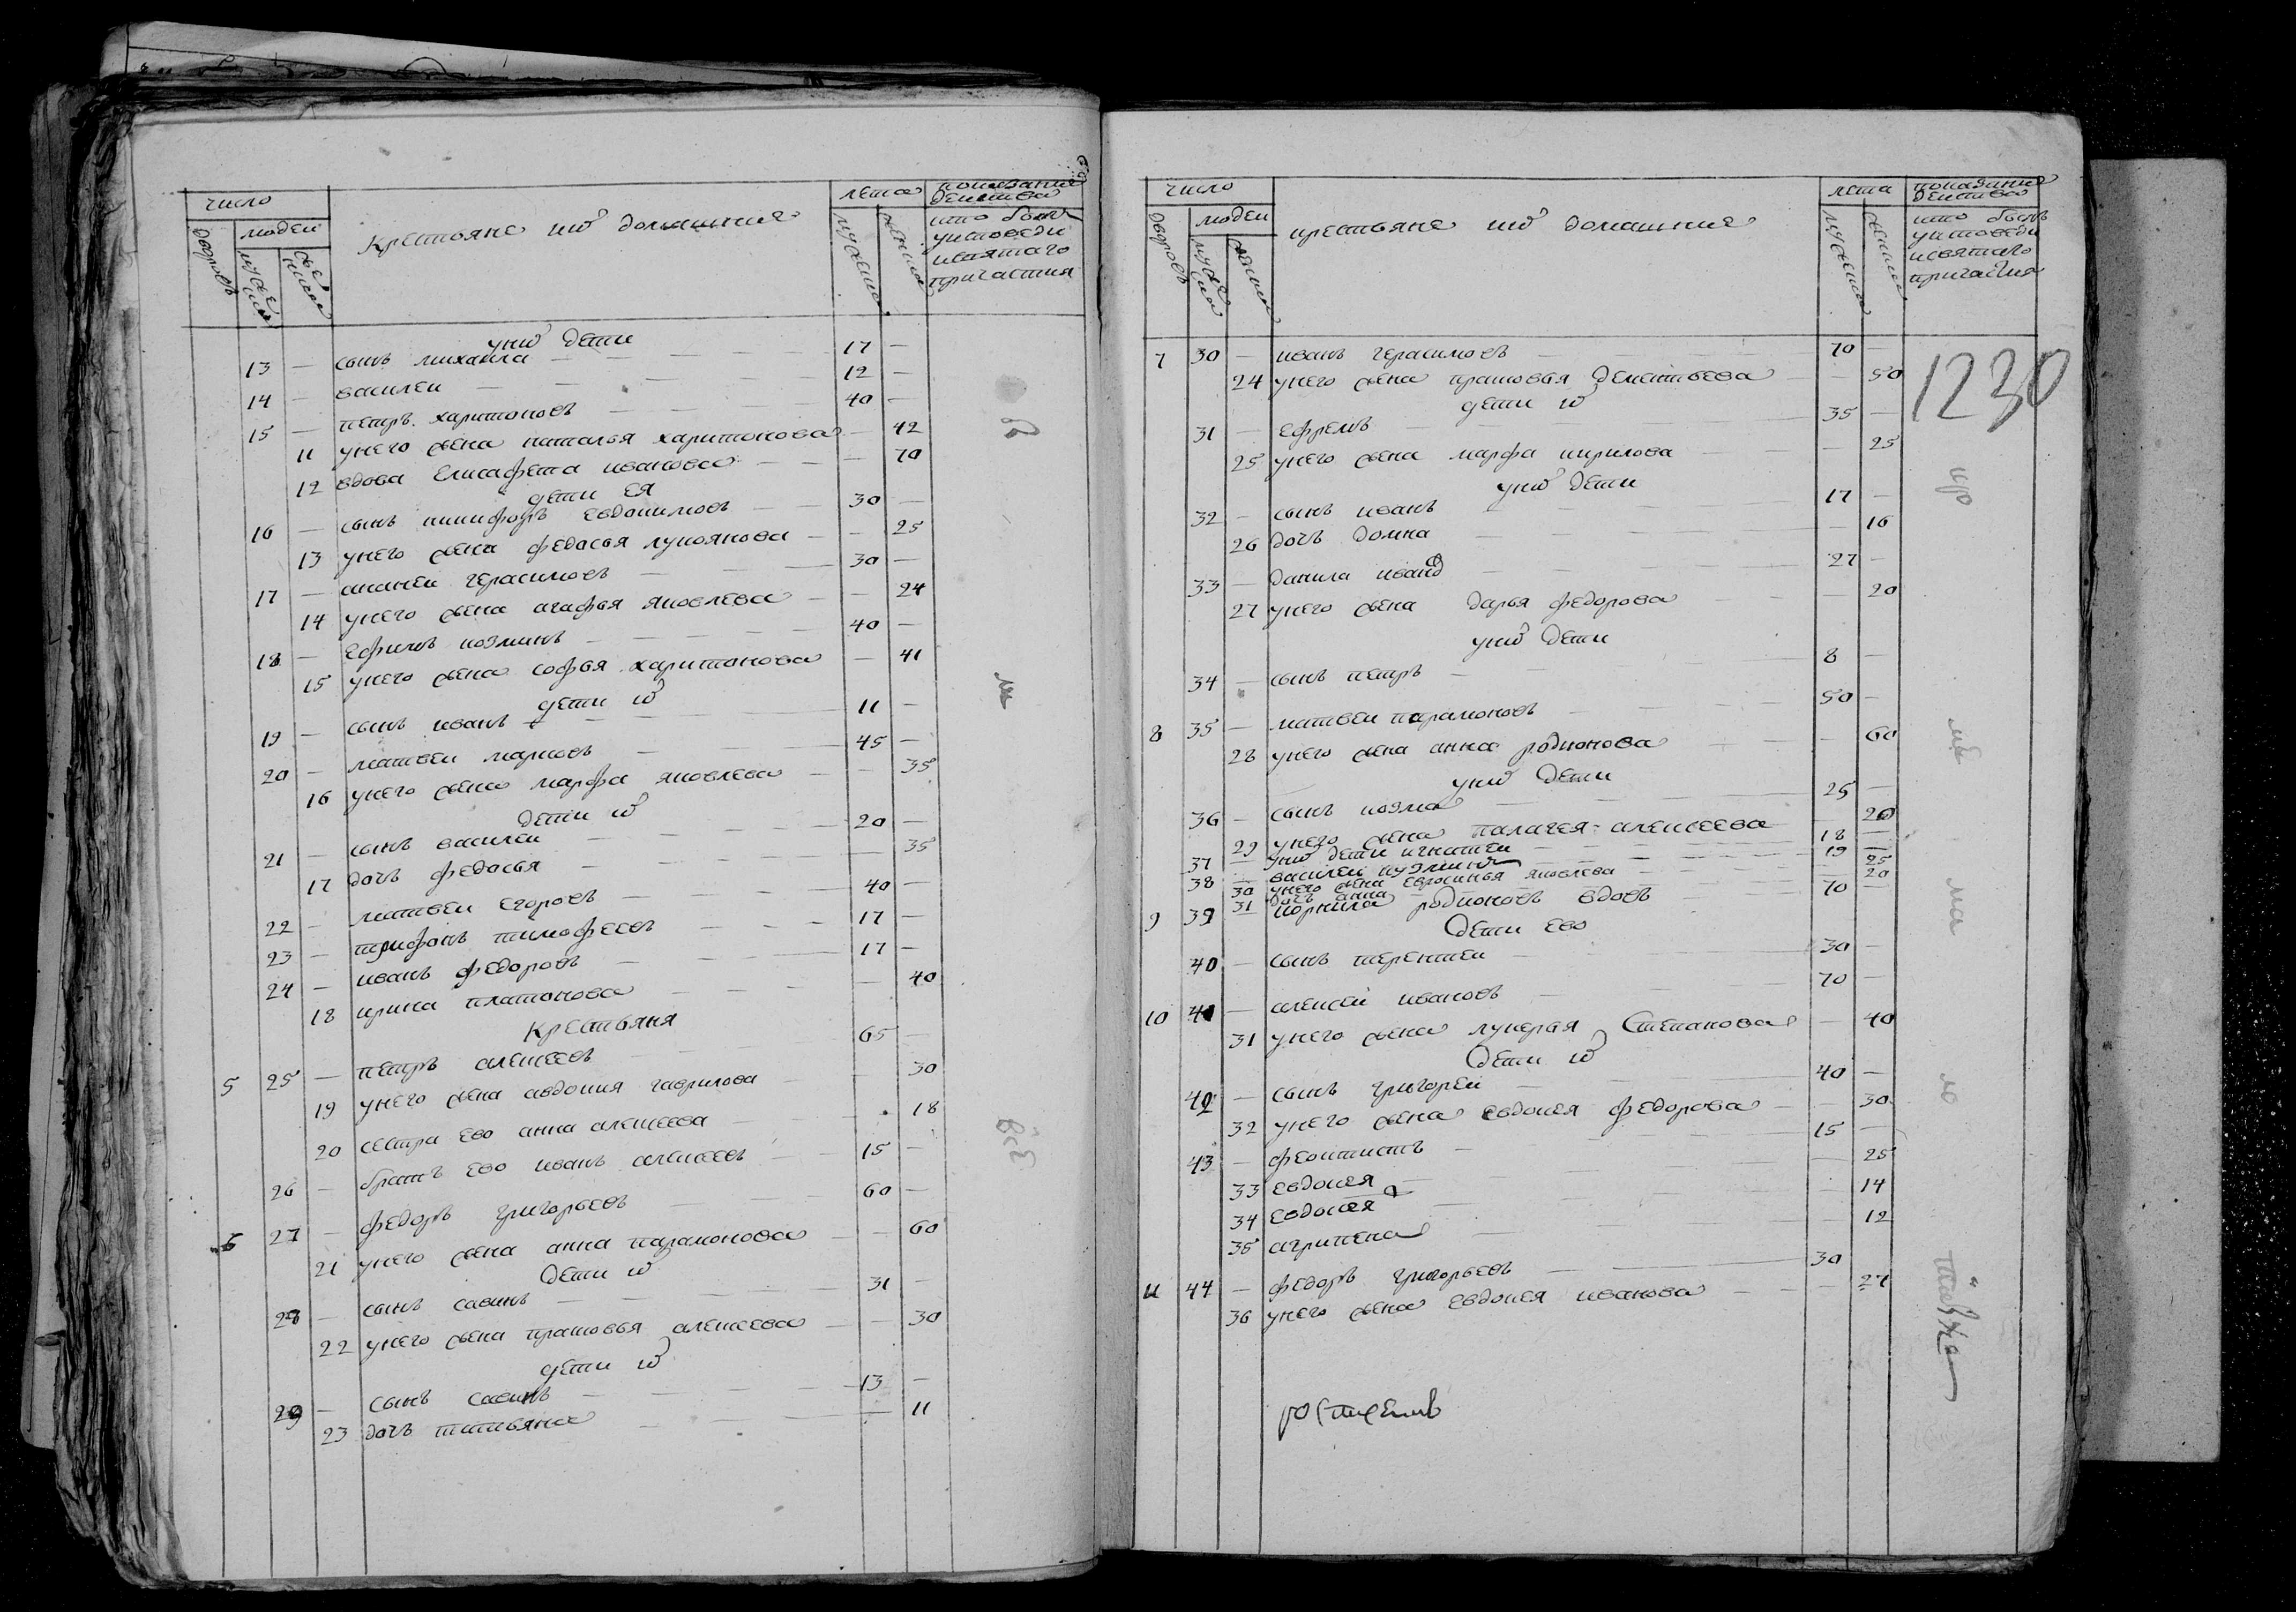 число
людей
дворовъ
мужеска
женска
крестьяне ихъ домашние
лета
мужеска
женска
показание действа
кто былъ
уисповеди
исвятаго
причастия
уних дети
13 — сынъ михаила — 17 —
14 — василеи — 12 —
15 — петръ харитоновъ — 40 —
11 унего жена наталья харитонова — 42
12 вдова елисафета иванова — 70
дети ея
16 — сынъ никифоръ евдокимовъ — 30 —
13 унего жена федосья лукоянова — 25
17 — ананеи герасимовъ — 30 —
14 унего жена агафья яковлева — 24
18 — ефимъ козминъ — 40 —
15 унего жена софья харитонова — 41
дети их
19 — сынъ иванъ — 11 —
20 — матвеи марковъ — 45 —
16 унего жена марфа яковлева — 35
дети их
21 — сынъ василеи — 20 —
17 дочь федосья — 35
22 — матвеи егоровъ — 40 —
23 — трифонъ тимофеевъ — 17 —
24 — иванъ федоровъ — 17 —
18 ирина платонова — 40
крестьяня
5 25 — петръ алексеевъ — 65 —
19 унего жена авдотия гаврилова — 30
20 сестра ево анна алексеева — 18
26 — братъ ево иванъ алексеевъ — 15 —
6 27 — федоръ григорьевъ — 60 —
21 унего жена анна парамонова — 60
дети их
28 — сынъ савинъ — 31 —
22 унего жена прасковья алексеева — 30
дети их
29 — сынъ савинъ — 13 —
23 дочь татьяна — 11
всё
число
людей
дворовъ
мужеска
женска
крестьяне их домашние
лета
мужеска
женска
показание действа
кто былъ
уисповеди
исвятаго
причастия
1230
7 30 — иванъ герасимовъ — 70 —
24 унего жена прасковья дементьева — 50
дети их
31 — ефремъ — 35 —
25 унего жена марфа кирилова — 25
уних дети
32 — сынъ иванъ — 17 —
26 дочь домна — 16
33 — данила иванов — 27 —
27 унего жена дарья федорова — 20
уних дети
34 — сынъ петръ — 8 —
8 35 — матвеи парамоновъ — 50 —
28 унего жена анна родионова — 60
уних дети
36 — сынъ козма — 25 —
29 унего жена палагея алексеева — 20
37 — уних дети игнатеи — 18 —
38 — василеи кузминъ — 19 —
30 унего жена евросинья яковлева — 25
31 дочь анна — 20
9 39 — корнила родионовъ вдовъ — 70 —
дети ево
40 — сынъ терентеи — 30 —
10 41 — алексеи ивановъ — 70 —
31 унего жена лукерья степанова — 40
дети их
42 — сынъ григореи — 40 —
32 унего жена евдокея федорова — 30
43 — феоктистъ — 15 —
33 евдокея — 25
34 евдокея — 14
35 агрипена — 12
11 44 — федоръ григорьевъ — 30
36 унего жена евдокея иванова — 27